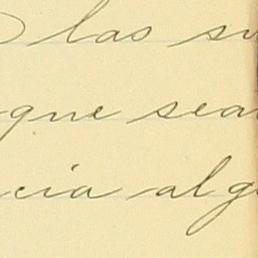 las su
que sea
cia alg